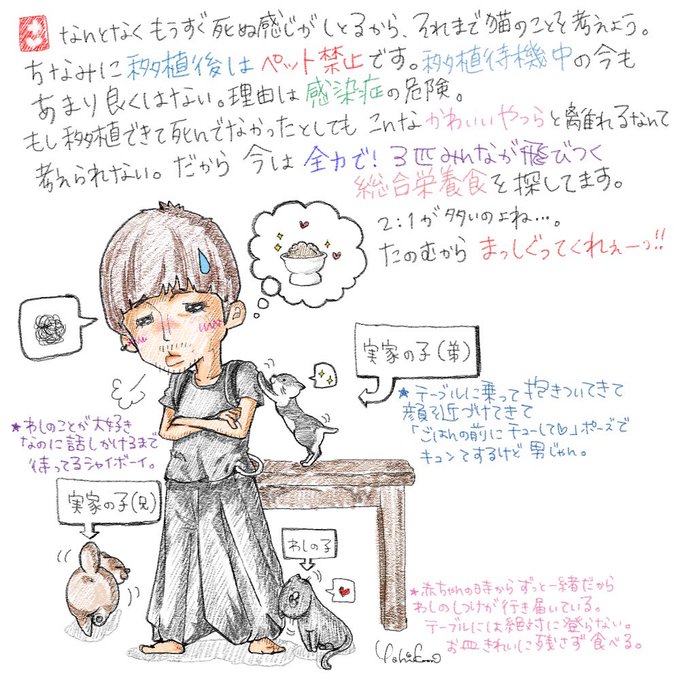 なんとなくもうすぐ死ぬ感じがしとるから、それまで猫のことを考えよう。
ちなみに移植後はペット禁止です。移植待機中の今も
あまり良くはない。理由は感染症の危険。
もし移植できて死んでなかったとしてもこんなかわいいやつらと離れるなんて
考えられない。だから今は全力で!3匹みんなが飛びつく
総合栄養食を探してます。
2:1が多いのよね…。
たのむからまっしぐってくれぇーっ!!
実家の子(弟)
★テーブルに乗って抱きついてきて
顔近づけてきて
「ごはんの前にチューして♡」ポーズで
キュンてするけど男じゃん。
★わしのことが大好き
なのに話しかけるまで
待ってるシャイボーイ。
実家の子(兄)
わしの子
★赤ちゃんの時からずっと一緒だから
わしのしつけが行き届いている。
テーブルには絶対に登らない。
お皿きれいに残さず食べる。